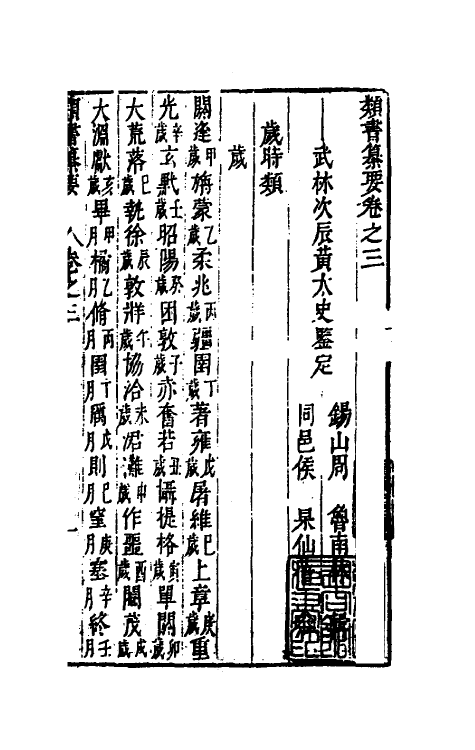 類書纂要卷之三
武林次辰黃太史鑒定
錫山周　魯南
同邑侯　杲仙
歲時類
歲
閼逢甲歲旃蒙乙歲柔兆丙歲彊圉丁歲著雍戊歲屠維巳歲上章庚歲重
光辛歲玄黓壬歲昭陽癸歲困敦子歲赤奮若丑歲攝提格寅歲單閼卯歲
大荒落巳歲執徐辰歲敦牂午歲協洽未歲涒灘申歲作噩酉歲閹茂戌歲
大淵獻亥歲畢甲月橘乙月脩丙月圉丁月厲戊月則巳月窒庚月塞辛月終壬月
類書纂要　卷之三　一